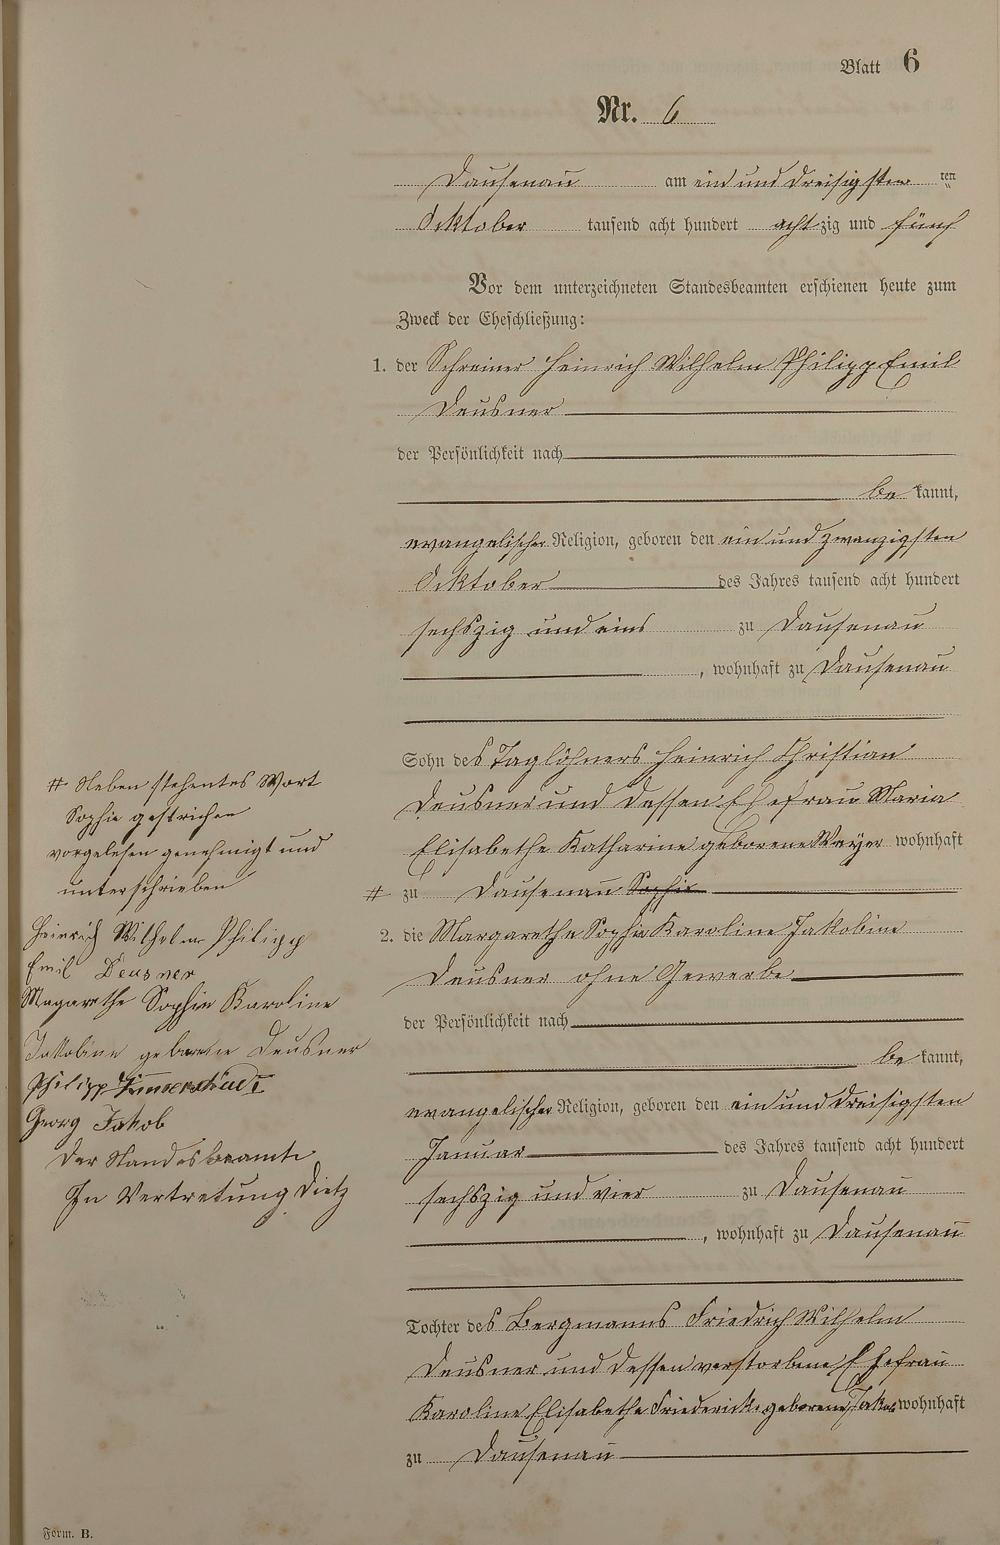 Blatt 6
Nr. 6
Dausenau am ein und dreisigsten ten
Oktober tausend acht hundert achtzig und fünf
Vor dem unterzeichneten Standesbeamten erschienen heute zum
Zweck der Eheschließung:
1. der Schreiner Heinrich Wilhelm Philipp Emil
Deusner
der Persönlichkeit nach
be kannt,
evangelischer Religion, geboren den ein und zwanzigsten
Oktober des Jahres tausend acht hundert
sechszig und eins zu Dausenau
, wohnhaft zu Dausenau
Sohn des Taglöhners Heinrich Christian
Deusner und dessen Ehefrau Maria
Elisabethe Katharine geborene Weyer wohnhaft
# zu Dausenau Sophie
2. die Margarethe Sophie Karoline Jakobine
Deusner ohne Gewerbe
der Persönlichkeit nach
be kannt,
evangelischer Religion, geboren den ein und dreisigsten
Januar des Jahres tausend acht hundert
sechszig und vier zu Dausenau
, wohnhaft zu Dausenau
Tochter des Bergmanns Friedrich Wilhelm
Deusner und dessen verstorbene Ehefrau
Karoline Elisabethe Friedericke geborene Jakob wohnhaft
zu Dausenau
# Neben stehentes Wort
Sophie gestrichen
vorgelesen genehmigt und
unterschrieben
Heinrich Wilhelm Philipp
Emil Deusner
Magarethe Sophie Karoline
Jakobine geborene Deusner
Philipp
Georg Jakob
Der Standesbeamte
In Vertretung Dietz
Form. B.